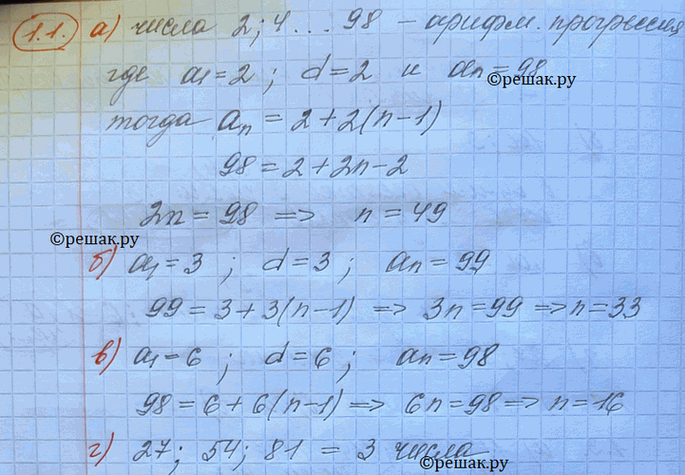 1.1. а) числа 2; 4 ... 98 – арифм. прогрессия
где a₁ = 2 ; d = 2 и aₙ = 98
©решак.ру
тогда aₙ = 2 + 2(n – 1)
98 = 2 + 2n – 2
2n = 98 => n = 49
©решак.ру
б) a₁ = 3 ; d = 3 ; aₙ = 99
99 = 3 + 3(n – 1) => 3n = 99 => n = 33
в) a₁ = 6 ; d = 6 ; aₙ = 98
98 = 6 + 6(n – 1) => 6n = 98 => n = 16
г) 27; 54; 81 = 3 числа
©решак.ру